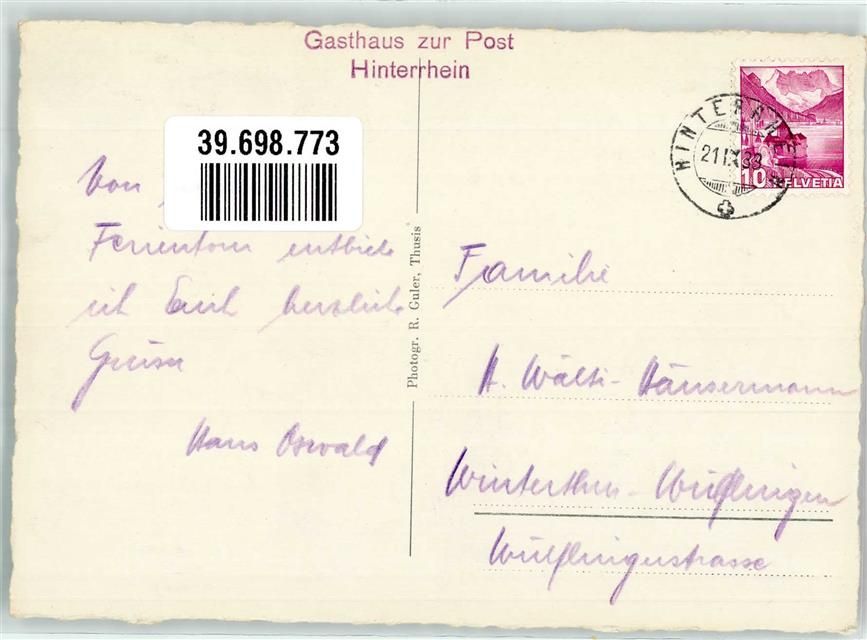 Gasthaus zur Post
Hinterrhein
39.698.773
Von
Ferientour entbiete
ich Euch herzliche
Grüsse
Hans Oswald
Photogr. R. Guler, Thusis
HINTERRHEIN
21.IX.38
10 HELVETIA
Familie
H. Wälti-Häusermann
Winterthur-Wülflingen
Wülflingerstrasse